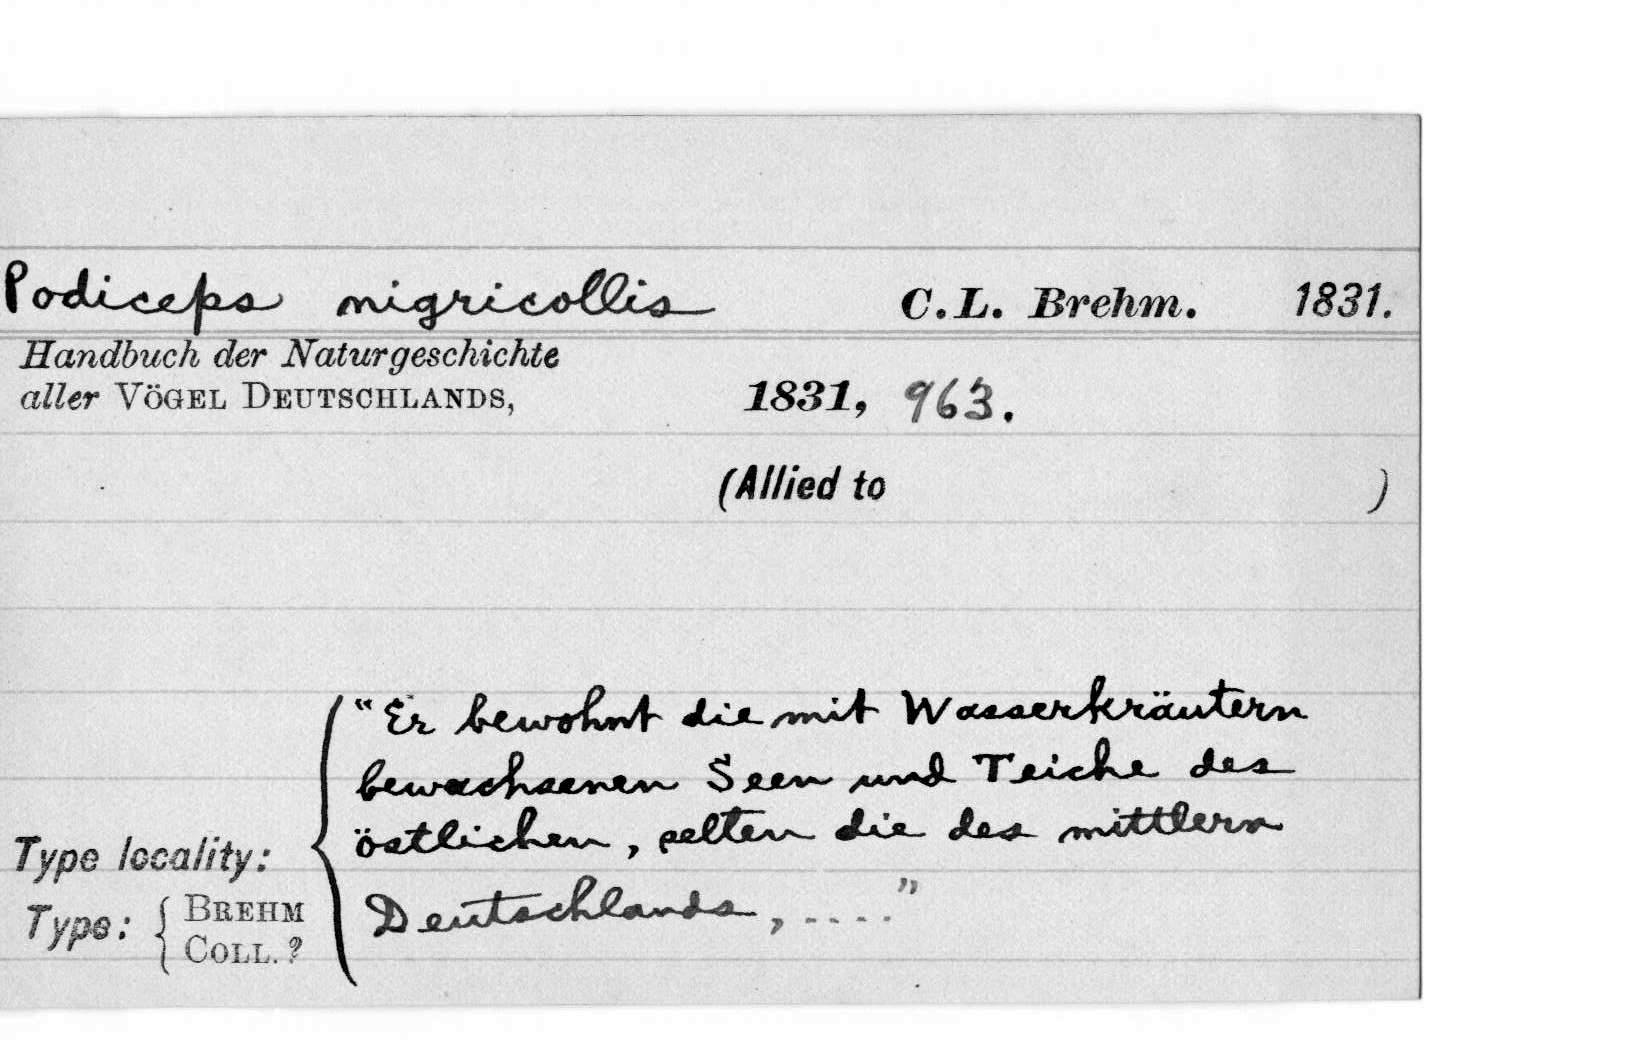 Podiceps nigricollis C.L. Brehm. 1831.
Handbuch der Naturgeschichte
aller VÖGEL DEUTSCHLANDS, 1831, 963.
(Allied to )
"Er bewohnt die mit Wasserkräutern
bewachsenen Seen und Teiche des
östlichen, selten die des mittlern
Type locality:
Deutschlands, ...."
Type: { BREHM
COLL. ?